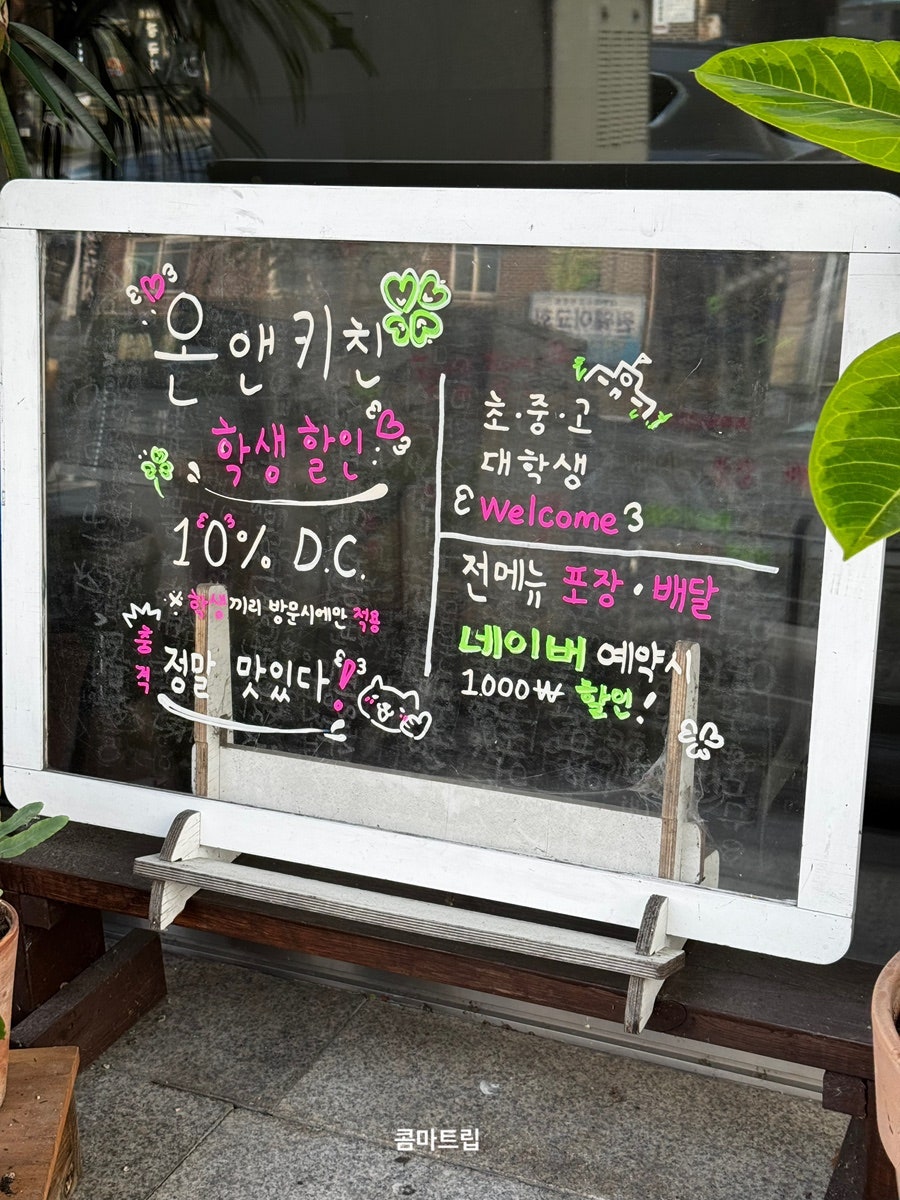 온앤키친
학생 할인
10% D.C.
※ 학생끼리 방문시에만 적용
충격
정말 맛있다!
초·중·고
대학생
Welcome
전메뉴 포장·배달
네이버 예약시
1000₩ 할인!
콤마트립